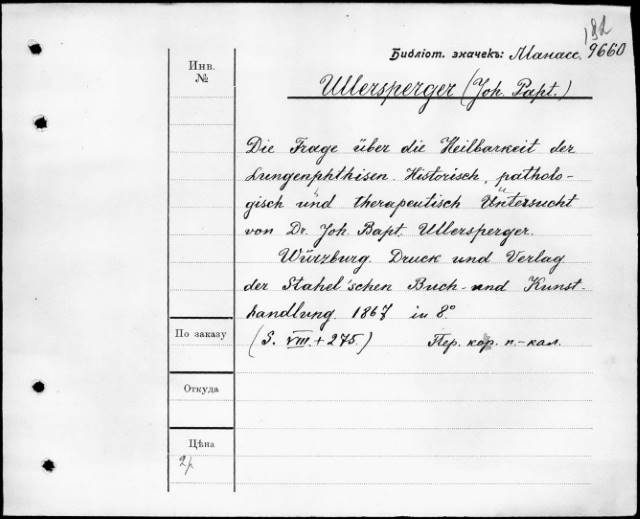 182
Библіот. значекъ: Манасс. 9660
Инв.
№
Ullersperger (Joh. Bapt.)
Die Frage über die Heilbarkeit der
Lungenphthisen. Historisch, patholo-
gisch und therapeutisch Untersucht
von Dr. Joh. Bapt. Ullersperger.
Würzburg. Druck und Verlag
der Stahel'schen Buch- und Kunst-
handlung. 1867 in 8°
(S. VIII. + 275.) Пер. кор. п.-кал.
По заказу
Откуда
Цѣна
2р